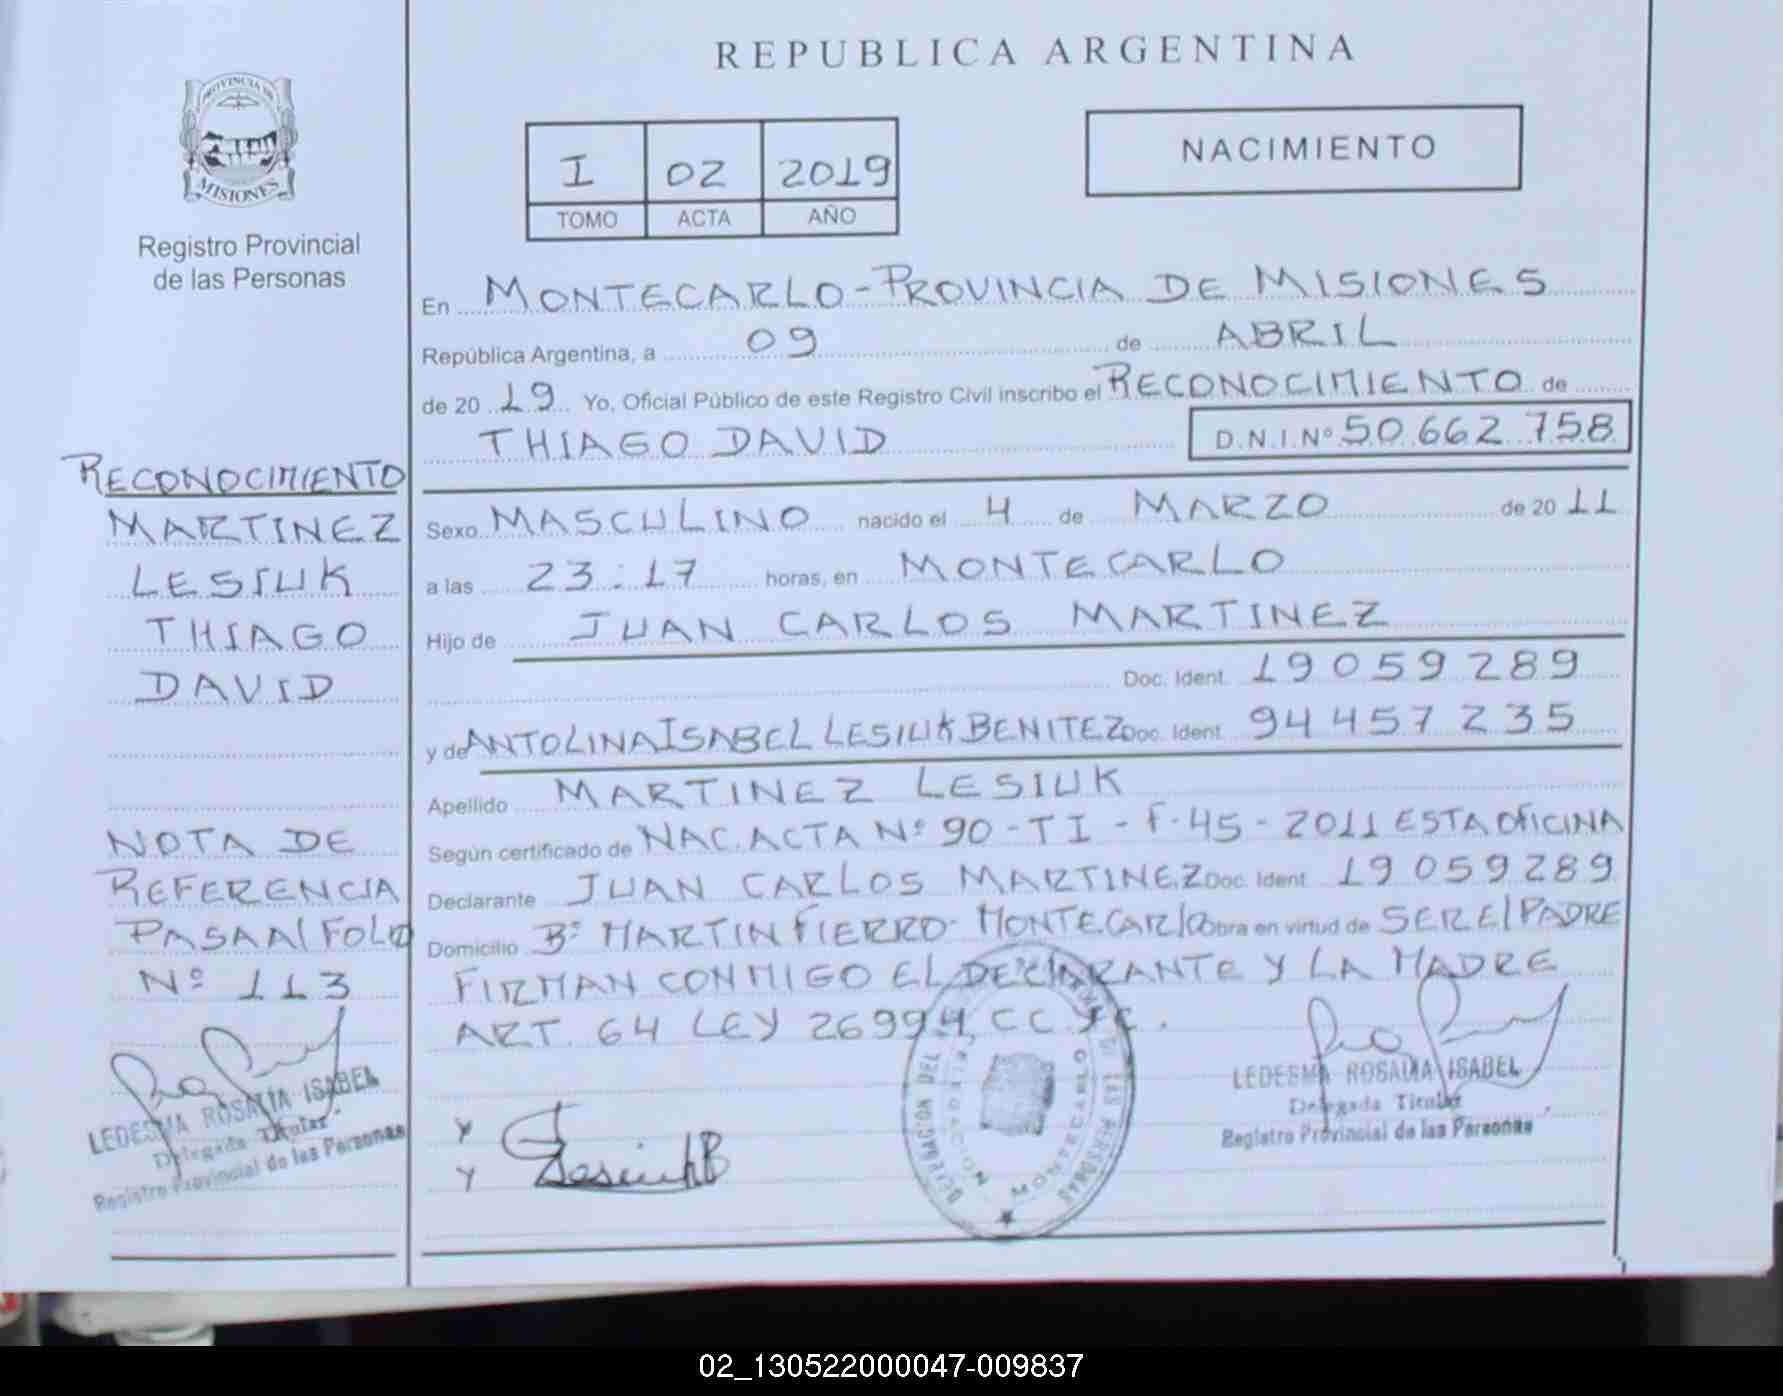 REPUBLICA ARGENTINA
PROVINCIA DE
MISIONES
Registro Provincial
de las Personas
I 02 2019
TOMO ACTA AÑO
NACIMIENTO
En MONTECARLO - PROVINCIA DE MISIONES
República Argentina, a 09 de ABRIL
de 20 19 Yo, Oficial Público de este Registro Civil inscribo el RECONOCIMIENTO de
THIAGO DAVID D.N.I.Nº 50.662.758
Sexo MASCULINO nacido el 4 de MARZO de 20 11
a las 23:17 horas, en MONTECARLO
Hijo de JUAN CARLOS MARTINEZ
Doc. Ident. 19 059 289
y de ANTOLINA ISABEL LESIUK BENITEZ Doc. Ident. 94 457 235
Apellido MARTINEZ LESIUK
Según certificado de NAC. ACTA Nº 90 - T I - F. 45 - 2011 ESTA OFICINA
Declarante JUAN CARLOS MARTINEZ Doc. Ident. 19 059 289
Domicilio Bº MARTIN FIERRO - MONTECARLO Obra en virtud de SER El PADRE
FIRMAN CONMIGO EL DECLARANTE Y LA MADRE
ART. 64 LEY 26994 CC
RECONOCIMIENTO
MARTINEZ
LESIUK
THIAGO
DAVID
NOTA DE
REFERENCIA
PASA Al FOLO
Nº 113
LEDESMA ROSALIA ISABEL
Delegada Titular
Registro Provincial de las Personas
Y
Y Lesiuk B
DELEGACION DEL
DE LAS PERSONAS
DELEGACION
MONTECARLO
LEDESMA ROSALIA ISABEL
Delegada Titular
Registro Provincial de las Personas
02_130522000047-009837